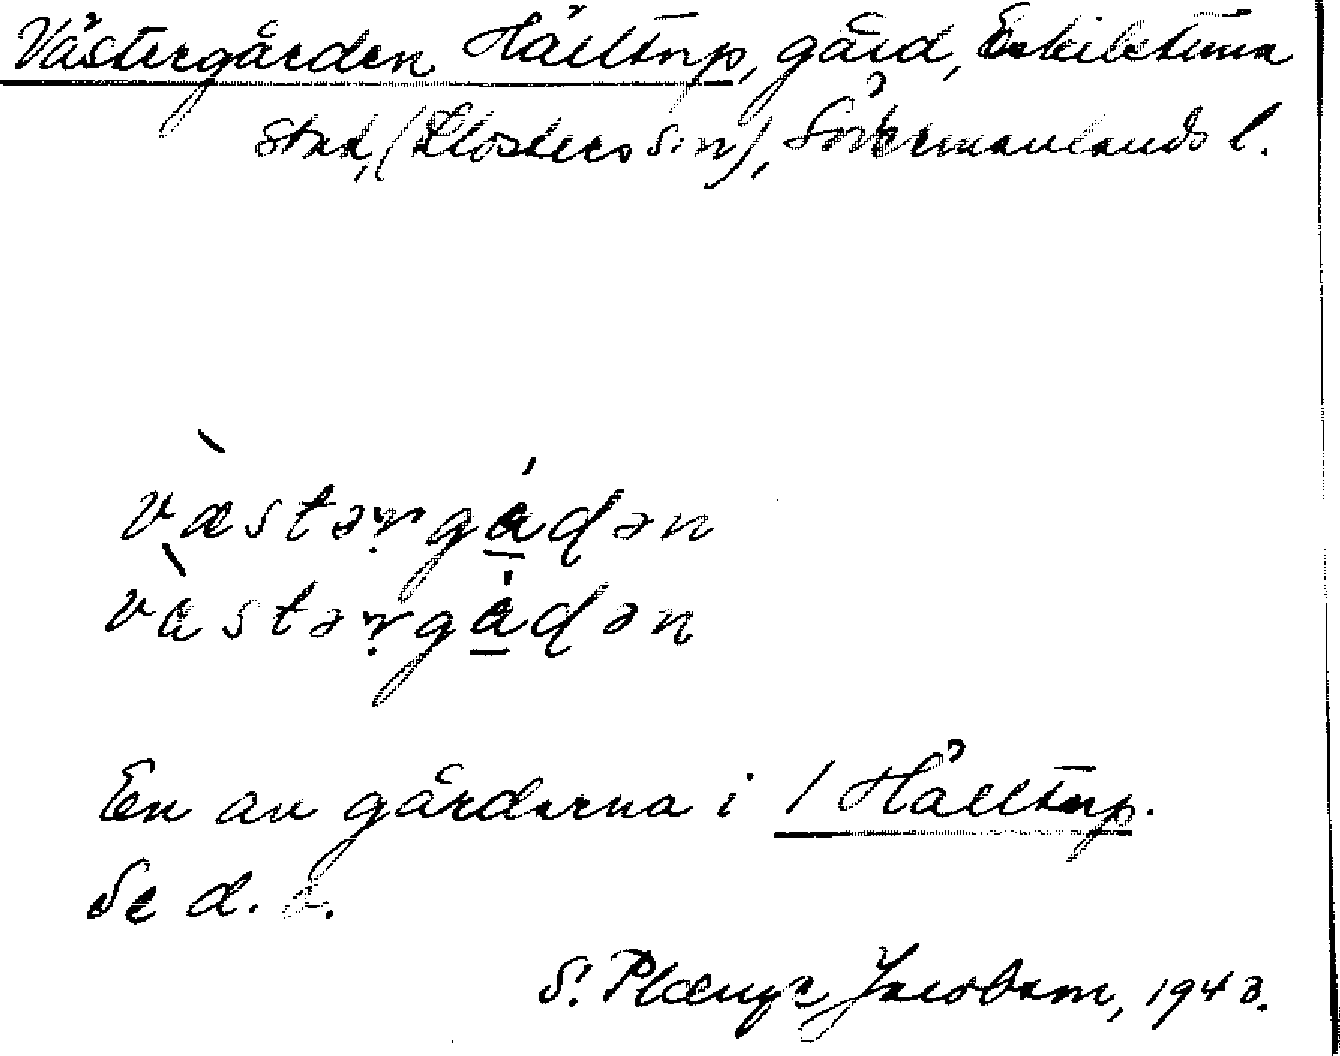 Västergården Hålltorp, gård, Eskilstuna
stad, (Klosters sn), Södermanlands l.
væ̀stərgádən
vàstərgádən
En av gårdarna i 1 Hålltorp.
Se d. o.
S. Jacobson, 1943.